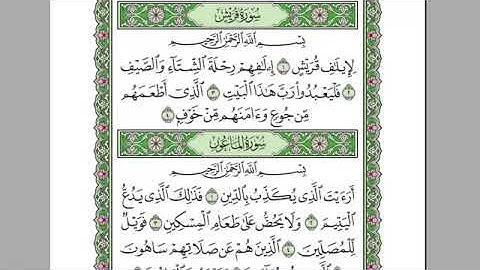 سُورَةُ قُرَيْشٍ
بِسْمِ اللَّهِ الرَّحْمَٰنِ الرَّحِيمِ
لِإِيلَٰفِ قُرَيْشٍ ١ إِۦلَٰفِهِمْ رِحْلَةَ ٱلشِّتَآءِ وَٱلصَّيْفِ
٢ فَلْيَعْبُدُوا۟ رَبَّ هَٰذَا ٱلْبَيْتِ ٣ ٱلَّذِىٓ أَطْعَمَهُم
مِّن جُوعٍ وَءَامَنَهُم مِّنْ خَوْفٍۭ ٤
سُورَةُ المَاعُونِ
بِسْمِ اللَّهِ الرَّحْمَٰنِ الرَّحِيمِ
أَرَءَيْتَ ٱلَّذِى يُكَذِّبُ بِٱلدِّينِ ١ فَذَٰلِكَ ٱلَّذِى يَدُعُّ
ٱلْيَتِيمَ ٢ وَلَا يَحُضُّ عَلَىٰ طَعَامِ ٱلْمِسْكِينِ ٣ فَوَيْلٌ
لِّلْمُصَلِّينَ ٤ ٱلَّذِينَ هُمْ عَن صَلَاتِهِمْ سَاهُونَ